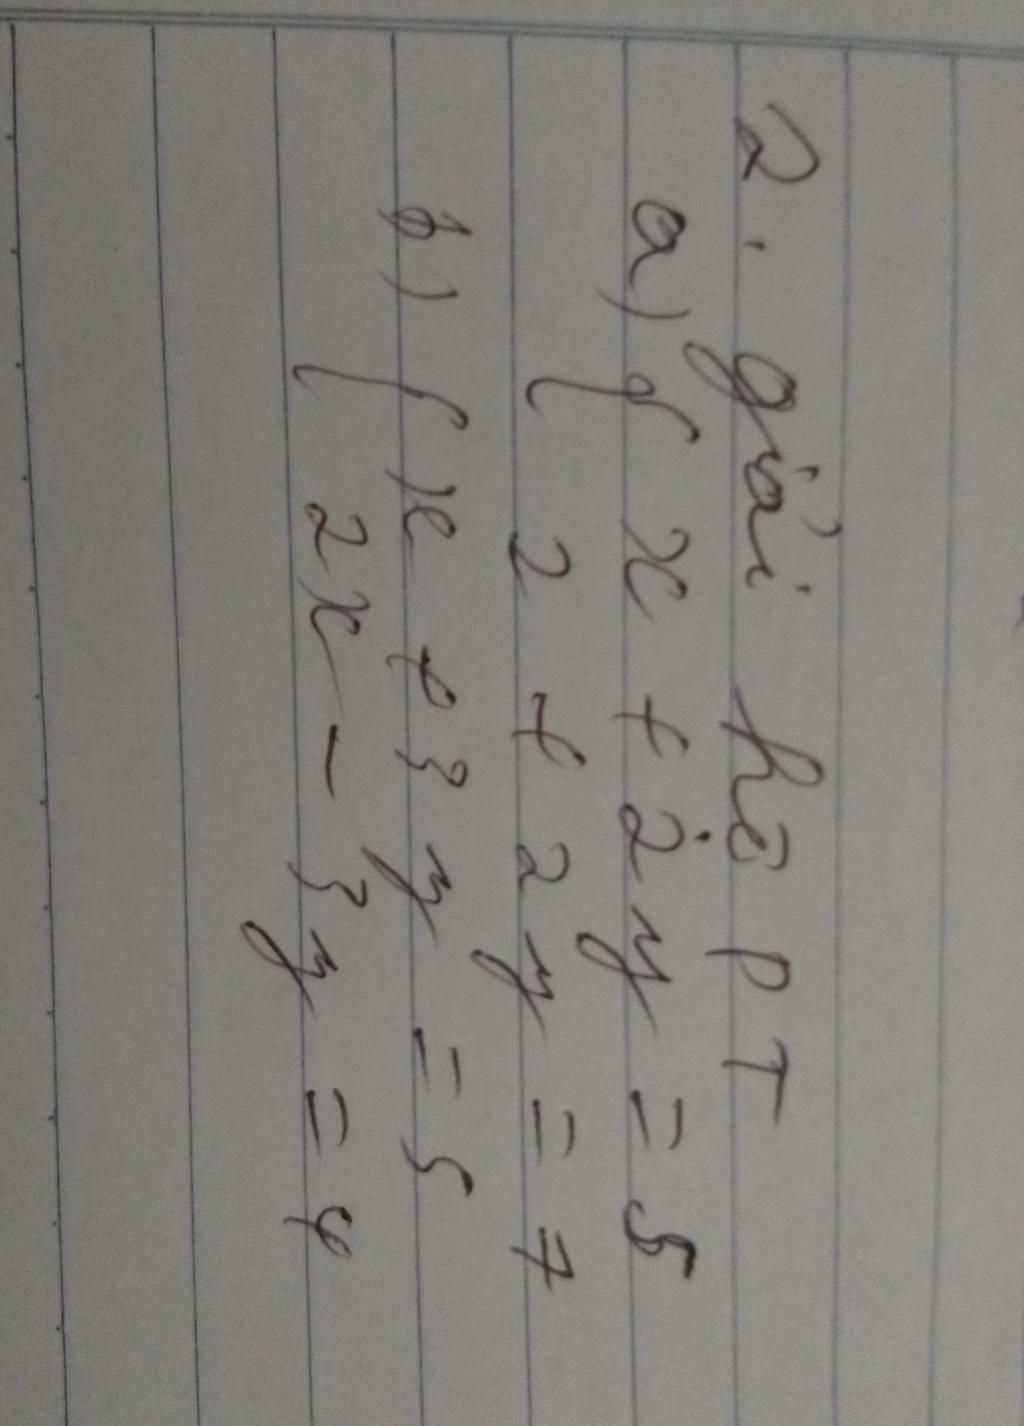 2. giải hệ PT
a) { x + 2y = 5
2 + 2y = 7
b) { x + 3y = 5
2x - 3y = 4